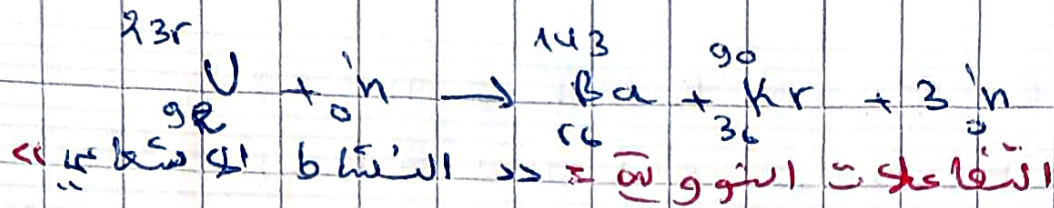 ²³⁵₉₂U + ¹₀n → ¹⁴³₅₆Ba + ⁹⁰₃₆Kr + 3 ¹₀n
التفاعلات النووية = « النشاط الإشعاعي »